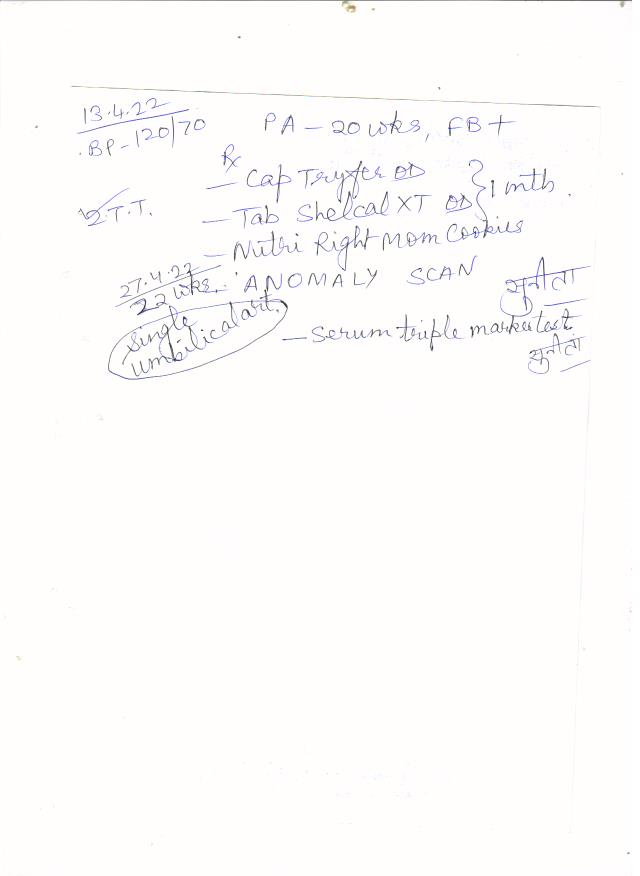 13.4.22
BP-120/70 PA - 20 wks, FB+
Rx
- Cap Tryfer OD
2 T.T. - Tab Shelcal XT OD } 1 mth.
- Nutri Right Mom Cookies
27.4.22
22 wks. ANOMALY SCAN
सुनीता
single
umbilical art. - Serum triple marker test
सुनीता